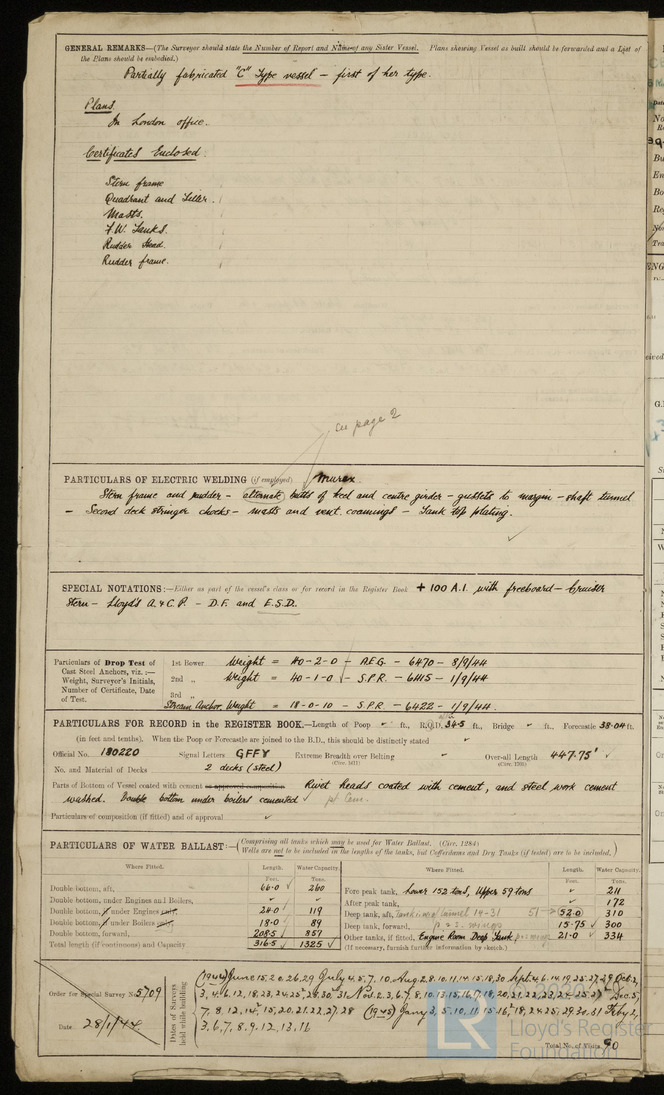 GENERAL REMARKS—(The Surveyor should state the Number of Report and Name of any Sister Vessel. Plans showing Vessel as built should be forwarded and a List of
the Plans should be embodied.)
Partially fabricated "C" Type vessel — first of her type.
Plans.
In London office.
Certificates Enclosed:
Stern frame
Quadrant and Tiller.
Masts.
F.W. Tanks.
Rudder Head.
Rudder frame.
see page 2
PARTICULARS OF ELECTRIC WELDING (if employed) Murex.
Stern frame and rudder — alternate butts of keel and centre girder — gussets to margin — shaft tunnel
— Second deck stringer chocks — masts and vent. coamings — Tank top plating.
SPECIAL NOTATIONS:—Either as part of the vessel's class or for record in the Register Book + 100 A.1. with freeboard — Cruiser
Stern — Lloyd's A. & C.P. — D.F. and E.S.D.
Particulars of Drop Test of
Cast Steel Anchors, viz.:—
Weight, Surveyor's Initials,
Number of Certificate, Date
of Test.
1st Bower Weight = 40-2-0 — A.E.G. — 6470 — 8/9/44
2nd „ Weight = 40-1-0 — S.P.R. — 6415 — 1/9/44
3rd „
Stream Anchor. Weight = 18-0-10 — S.P.R. — 6422 — 1/9/44.
PARTICULARS FOR RECORD in the REGISTER BOOK.—Length of Poop ft., R.Q.D. 34.5 ft., Bridge ft., Forecastle 38.04 ft.
(in feet and tenths). When the Poop or Forecastle are joined to the B.D., this should be distinctly stated
Official No. 180220 Signal Letters GFFY Extreme Breadth over Belting Over-all Length 447.75'
(Circ. 1611) (Circ. 1703)
No. and Material of Decks 2 decks (steel)
Parts of Bottom of Vessel coated with cement or approved composition Rivet heads coated with cement, and steel work cement
washed. Double bottom under boilers cemented
Particulars of composition (if fitted) and of approval
PARTICULARS OF WATER BALLAST:—(Comprising all tanks which may be used for Water Ballast. (Circ. 1284)
Wells are not to be included in the lengths of the tanks, but Cofferdams and Dry Tanks (if tested) are to be included.)
Where Fitted. Length. Water Capacity. Where Fitted. Length. Water Capacity.
Feet. Tons. Feet. Tons.
Double bottom, aft, 66.0 260
Double bottom, under Engines and Boilers,
Double bottom, if under Engines only, 24.0 119
Double bottom, if under Boilers only, 18.0 89
Double bottom, forward, 208.5 857
Total length (if continuous) and Capacity 316.5 1325
Fore peak tank, Lower 152 tons, Upper 59 tons 211
After peak tank, 172
Deep tank, aft, 14-31 51 52.0 310
Deep tank, forward, 15.75 300
Other tanks, if fitted, Engine Room Deep Tank 21.0 334
(If necessary, furnish further information by sketch.)
Order for Special Survey No. 5709
Date 28/1/44
Dates of Surveys
held while building
(1944) June 15, 20, 26, 29 July 4, 5, 7, 10 Aug 2, 8, 10, 11, 14, 15, 18, 30 Sept. 4, 6, 14, 19, 25, 27, 29 Oct 2,
3, 4, 6, 12, 18, 23, 24, 25, 28, 30, 31 Nov. 1, 2, 3, 6, 7, 8, 10, 13, 15, 16, 17, 18, 20, 21, 22, 23, 24, 25, 27 Dec. 5,
7, 8, 12, 14, 15, 20, 21, 22, 27, 28 (1945) Jany 3, 5, 10, 11, 15, 16, 18, 24, 25, 29, 30, 31 Feby 2,
3, 6, 7, 8, 9, 12, 13, 16
Total No. of Visits 90
© 2020
Lloyd's Register
Foundation
LR